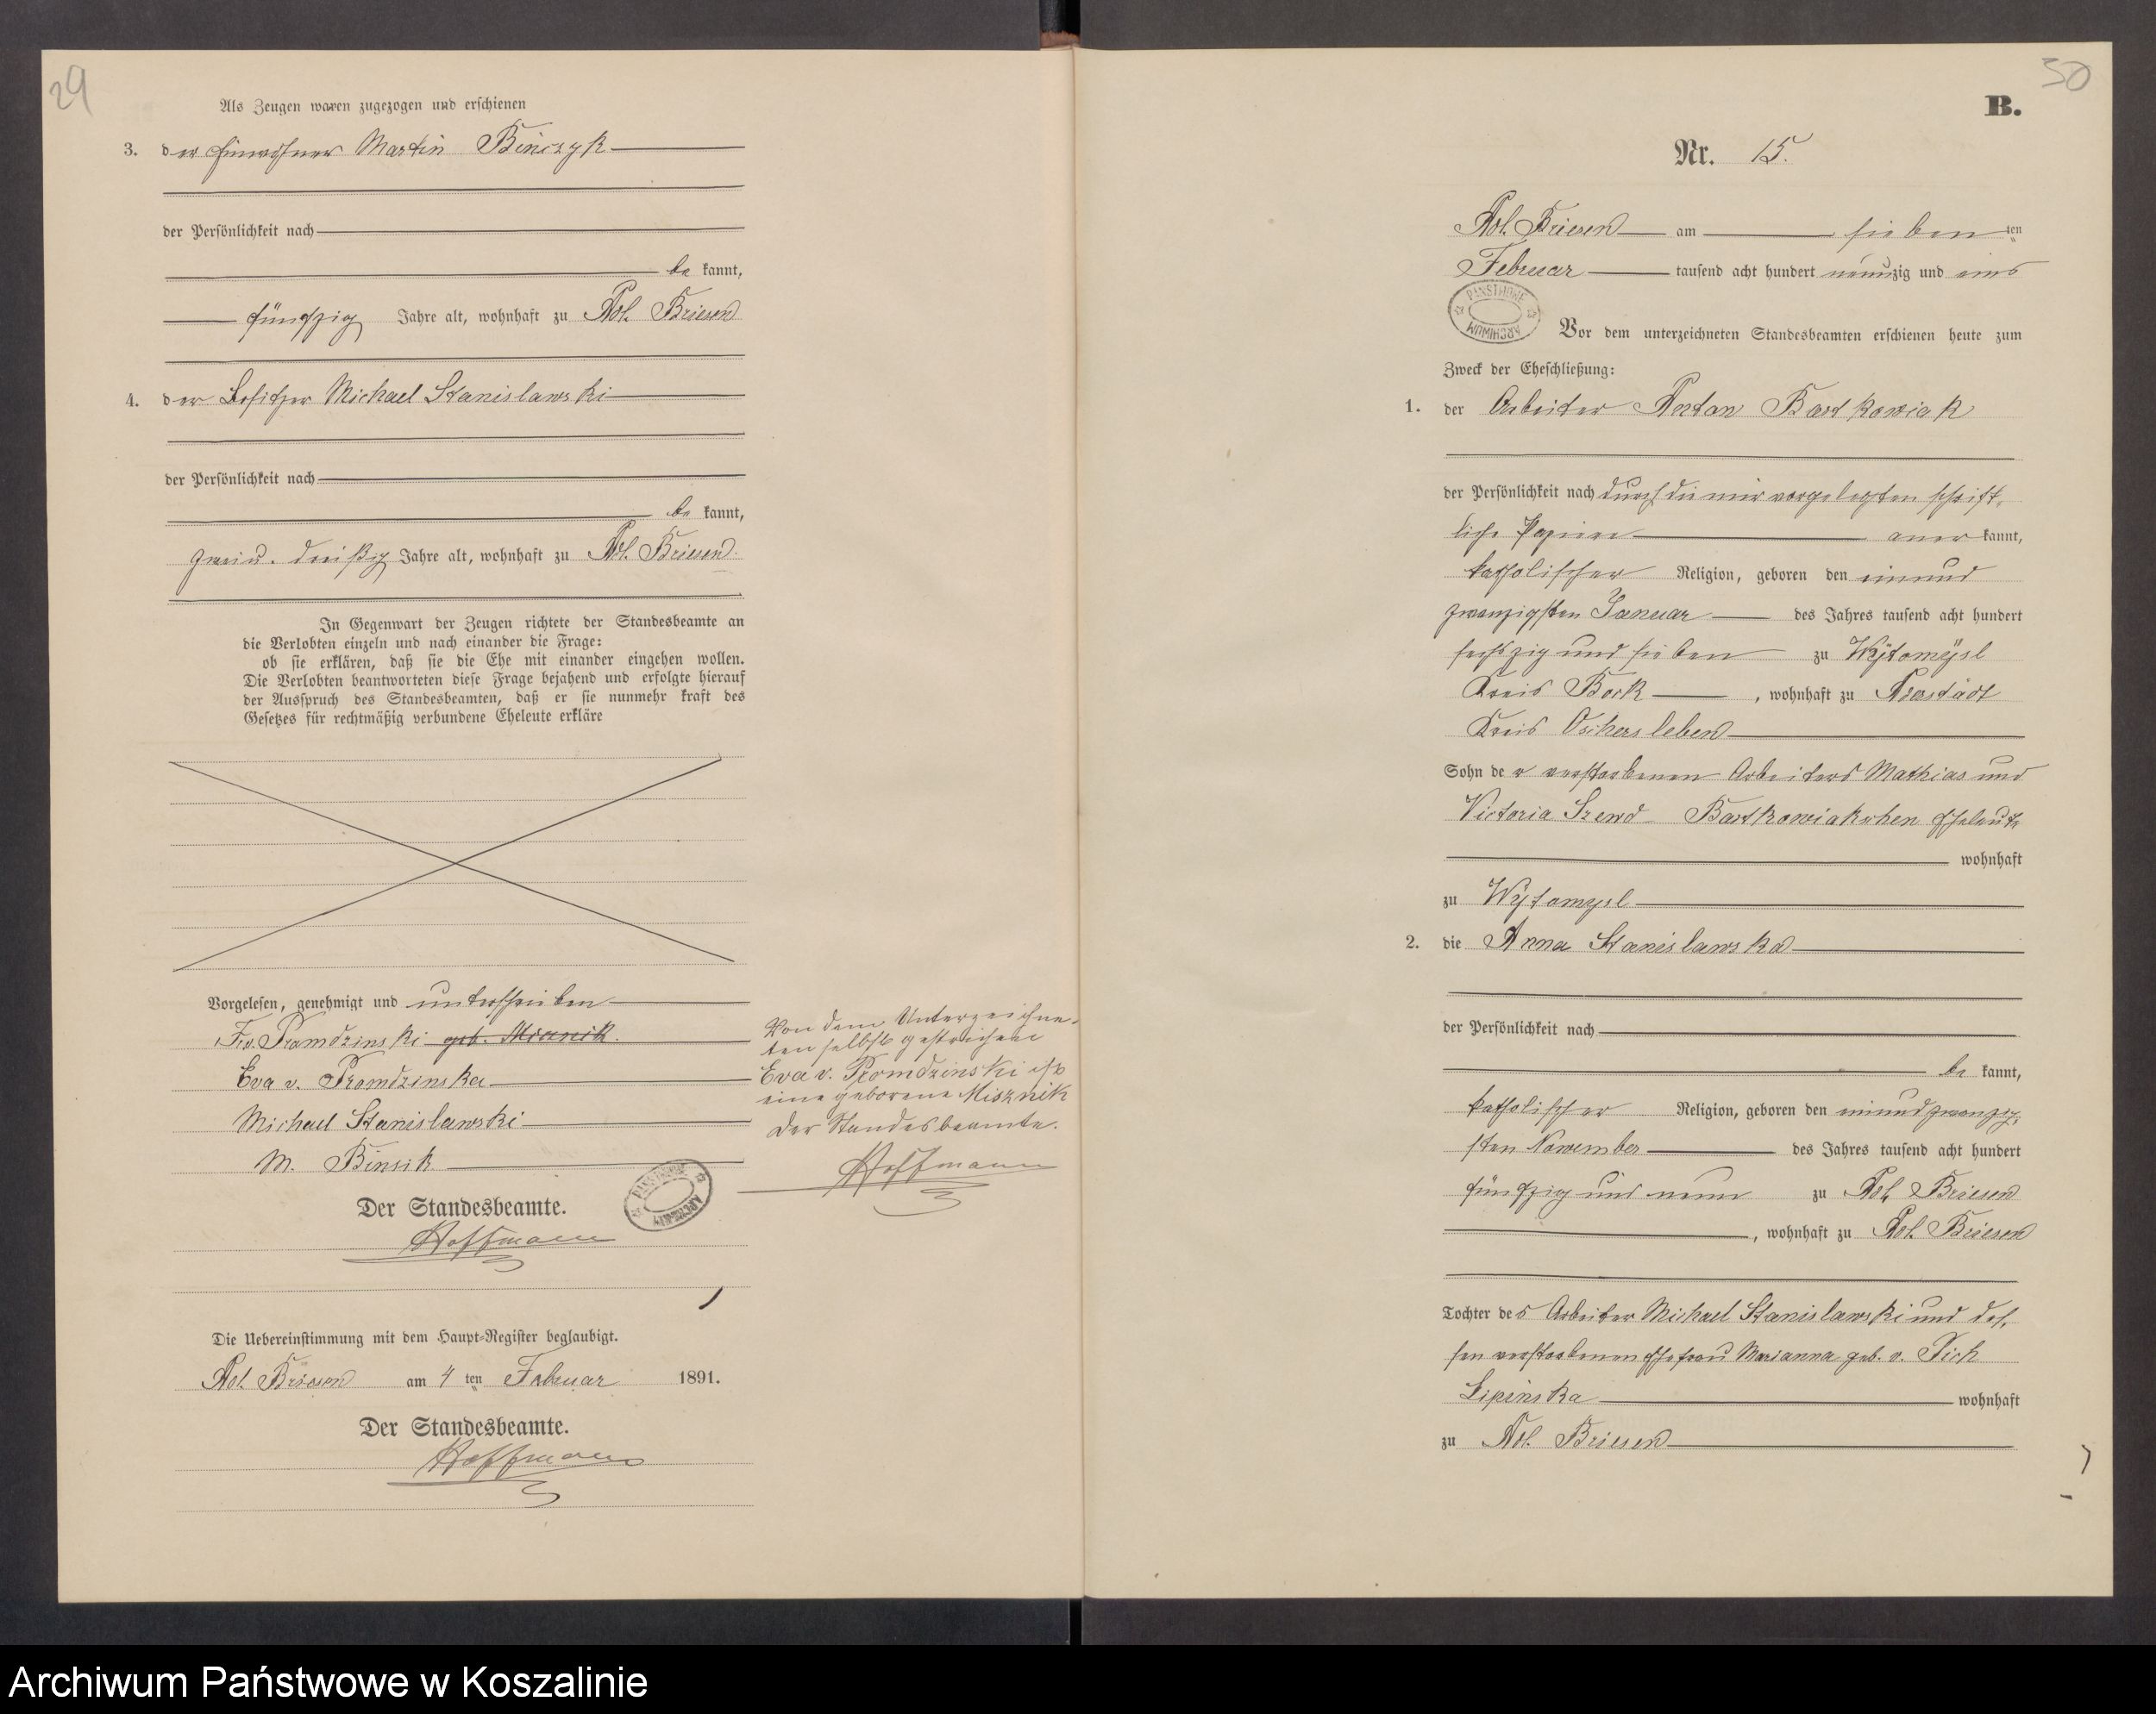 29
Als Zeugen waren zugezogen und erschienen
3. der Einwohner Martin Binczyk
der Persönlichkeit nach
be kannt,
fünfzig Jahre alt, wohnhaft zu Pol. Briesen
4. der Besitzer Michael Stanislawski
der Persönlichkeit nach
be kannt,
zwei u. dreißig Jahre alt, wohnhaft zu Pol. Briesen
In Gegenwart der Zeugen richtete der Standesbeamte an
die Verlobten einzeln und nach einander die Frage:
ob sie erklären, daß sie die Ehe mit einander eingehen wollen.
Die Verlobten beantworteten diese Frage bejahend und erfolgte hierauf
der Ausspruch des Standesbeamten, daß er sie nunmehr kraft des
Gesetzes für rechtmäßig verbundene Eheleute erkläre
Vorgelesen, genehmigt und unterschrieben
geb.
Eva v.
Michael Stanislawski
M. Binsik
Der Standesbeamte.
Hoffmann
Von dem Unterzeichne-
ten selbst gestrichen
Eva v. Promdzinski ist
eine geborene Misznik
Der Standesbeamte.
Hoffmann
Die Uebereinstimmung mit dem Haupt-Register beglaubigt.
Pol. Briesen am 4 ten Februar 1891.
Der Standesbeamte.
Hoffmann
50
B.
Nr. 15.
Pol. Briesen am sieben ten
Februar tausend acht hundert neunzig und eins
PAŃSTWOWE ARCHIWUM
Vor dem unterzeichneten Standesbeamten erschienen heute zum
Zweck der Eheschließung:
1. der Arbeiter Anton Bartkowiak
der Persönlichkeit nach durch die mir vorgelegten schrift-
liche Papiere aner kannt,
katholischer Religion, geboren den einund
zwanzigsten Januar des Jahres tausend acht hundert
sechszig und sieben zu Wytomysl
Kreis Bork, wohnhaft zu
Kreis Oschersleben
Sohn der verstorbenen Arbeiters Mathias und
Victoria Szewd Bartkowiakschen Eheleute
wohnhaft
zu Wytomysl
2. die Anna Stanislawska
der Persönlichkeit nach
be kannt,
katholischer Religion, geboren den einundzwanzig-
sten November des Jahres tausend acht hundert
fünfzig und neun zu Pol. Briesen
, wohnhaft zu Pol. Briesen
Tochter des Arbeiter Michael Stanislawski und des-
sen verstorbenen Ehefrau Marianna geb. v.
Lipinska wohnhaft
zu Pol. Briesen
Archiwum Państwowe w Koszalinie